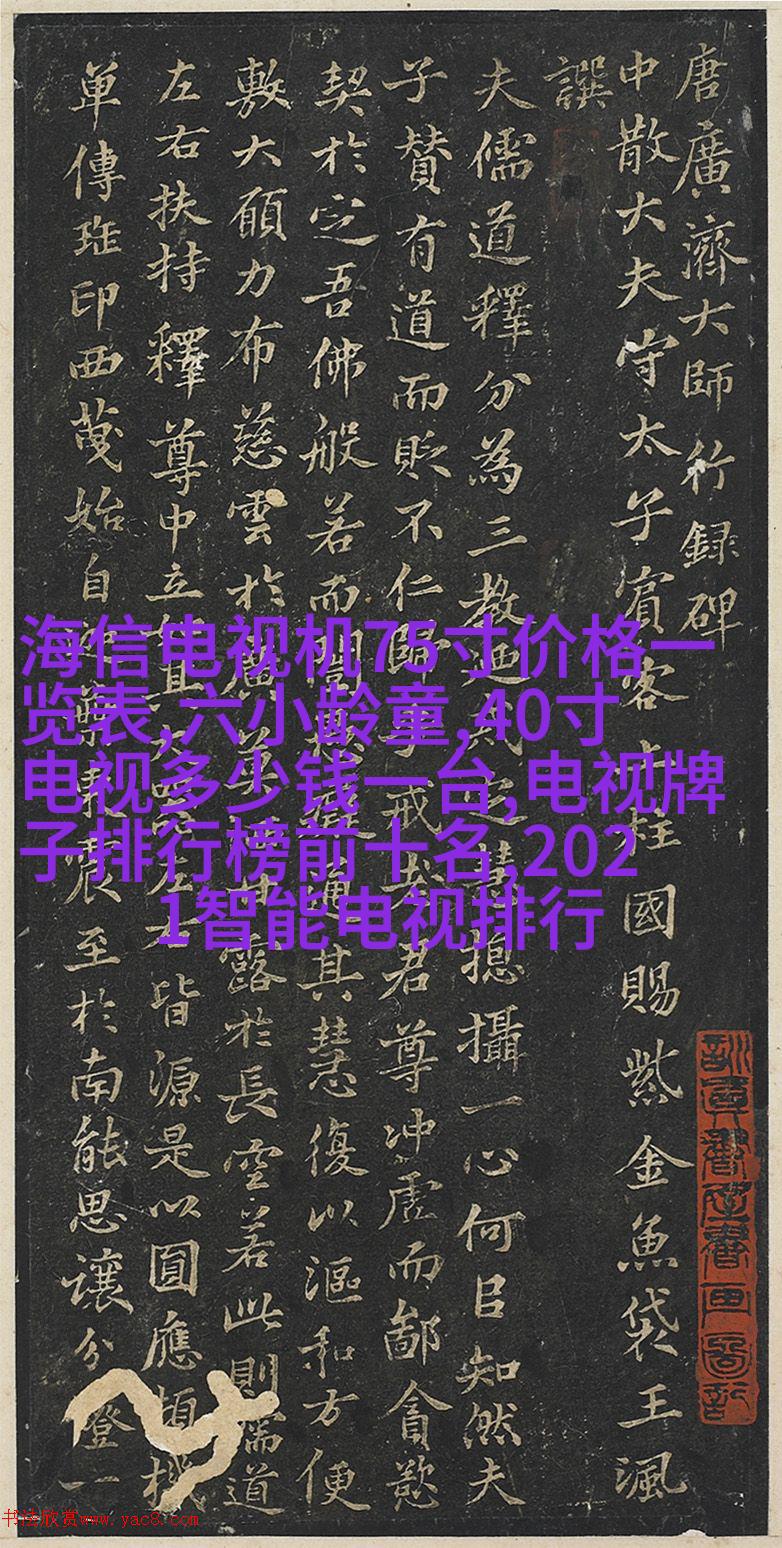 唐廣濟大師行録碑
中散大夫守太子賓客上柱國賜紫金魚袋王渢
譔
夫儒道釋分為三教摠攝一心何目知然夫
子賛有道而貶不仁歸乎戒老君尊冲虛而鄙貪慾
契於定吾佛般若而通其慧復以漚和方便
敷大願力布慈雲於甘露於長空若此則儒道
左右扶持釋尊中立皆源是以圓應頓機
單傳印西始自震至於南能思讓分燈一
海信电视机75寸价格一
览表,六小龄童,40寸
电视多少钱一台,电视牌
子排行榜前十名,202
1智能电视排行
书法欣赏www.yac8.com